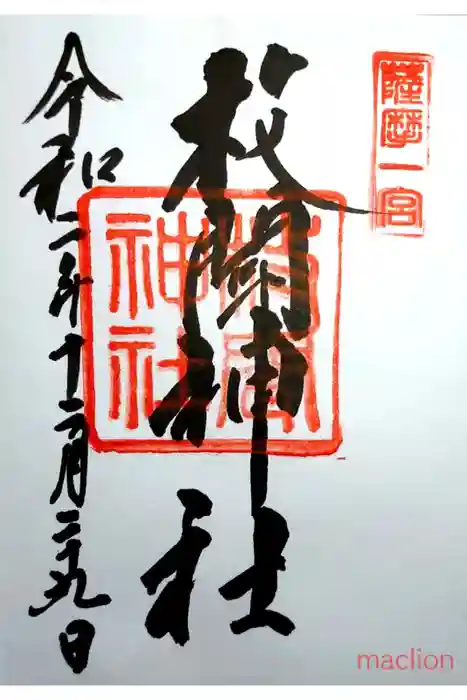 薩摩一宮
枚聞神社
神社
令和二年十二月二十九日
maclion